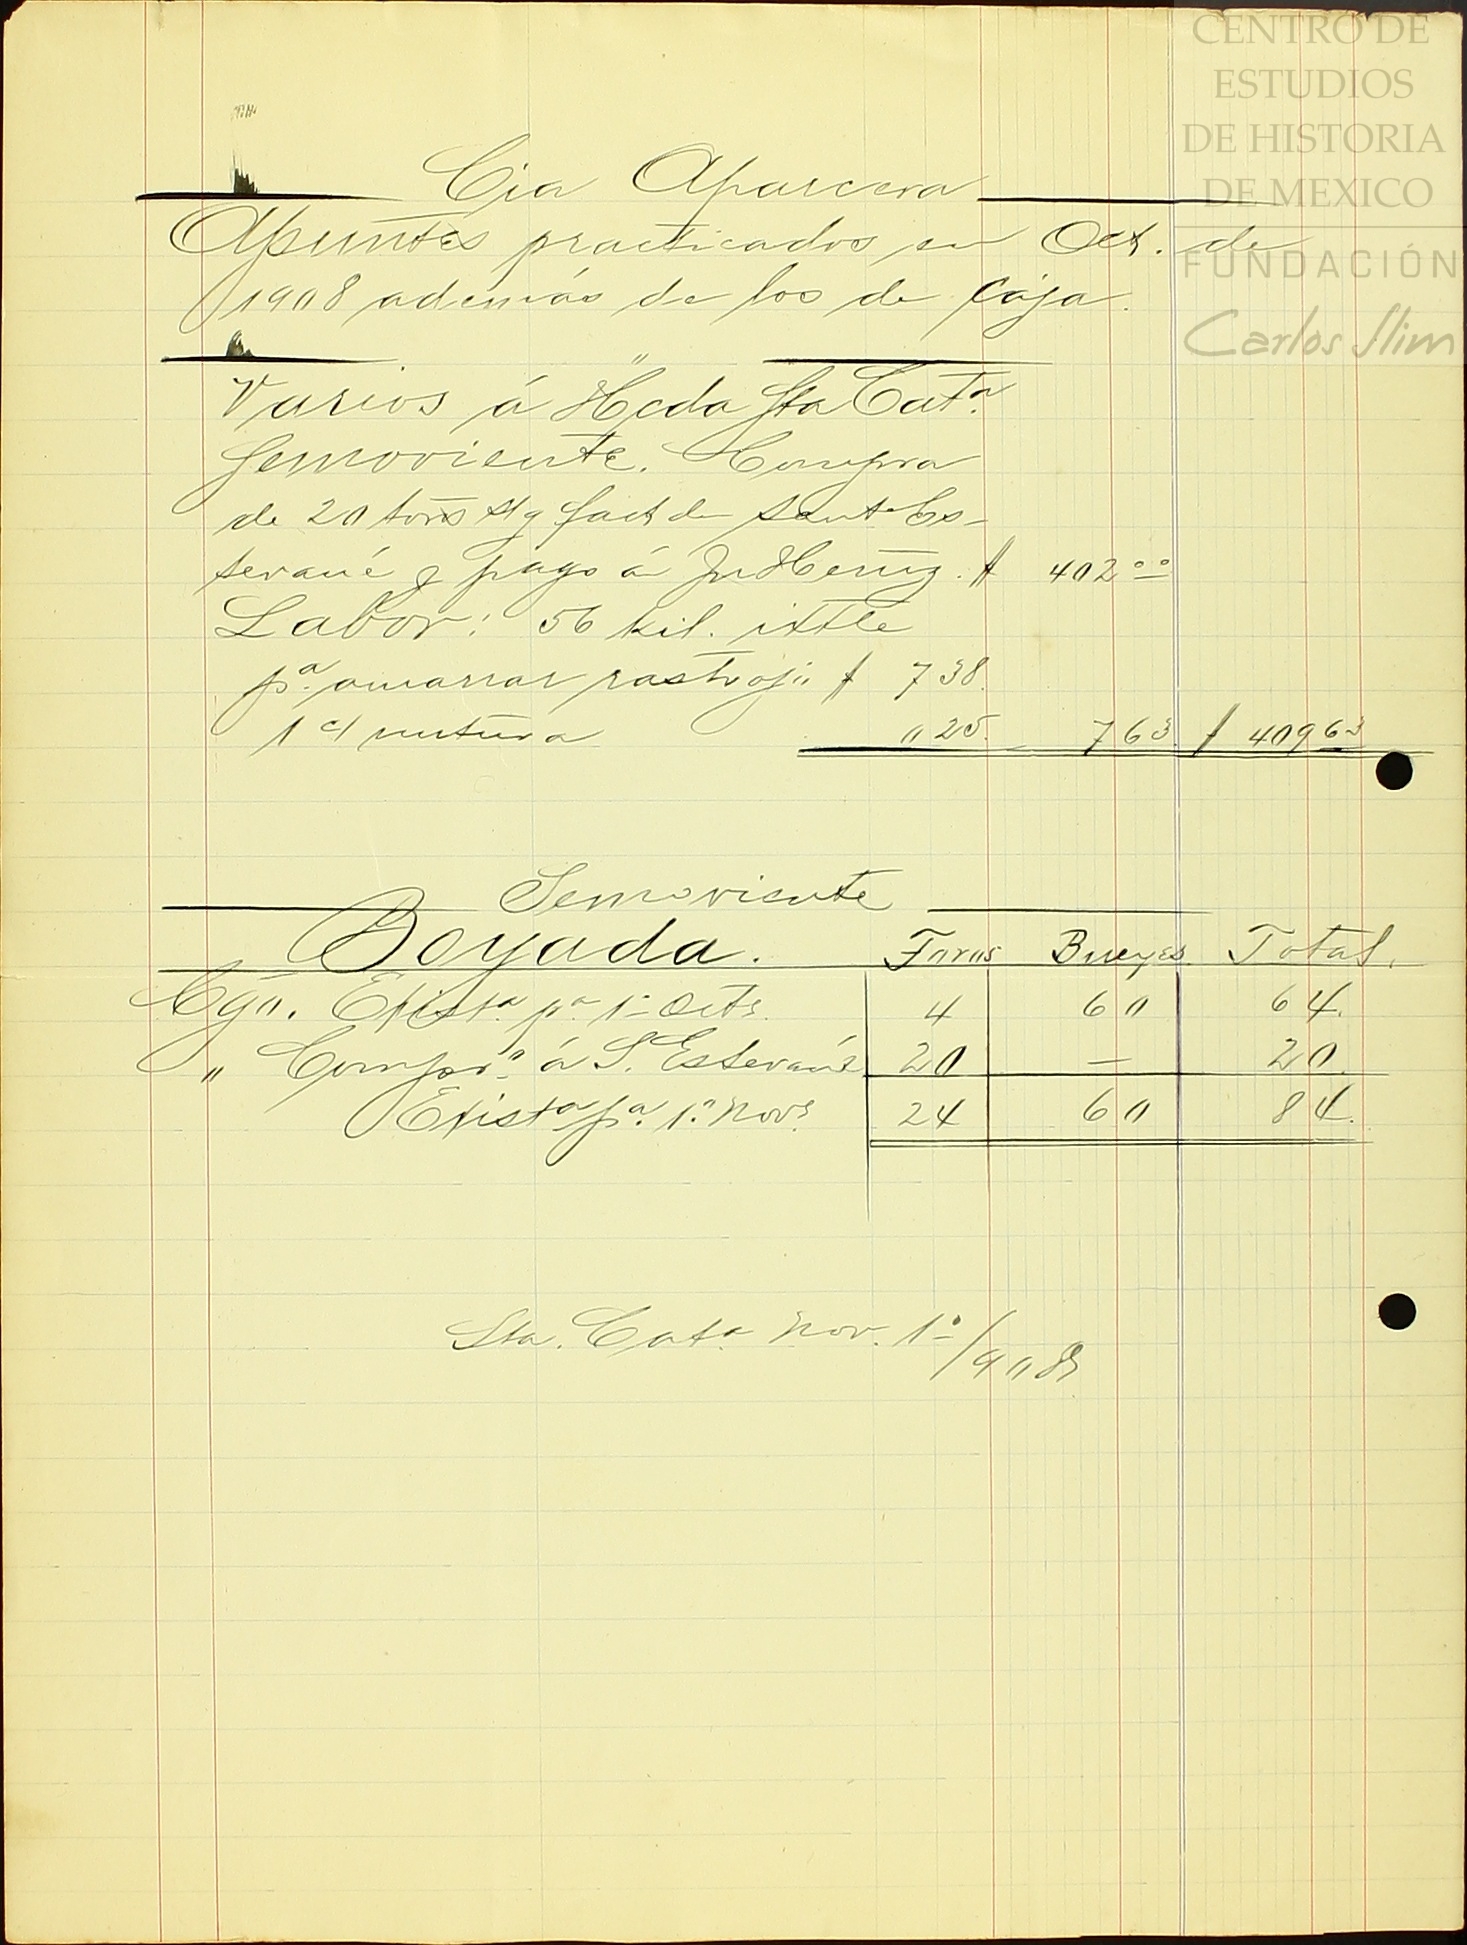 CENTRO DE
ESTUDIOS
DE HISTORIA
DE MEXICO
FUNDACIÓN
Carlos Slim
Cia Aparcera
Apuntes practicados en Oct. de
1908 además de los de Caja.
Varios á Hcda Sta Catª.
Semoviente. Compra
de 20 toros sg fact de Sant Es-
tevané y pago á Jn Herng. $ 402.00
Labor: 56 kil. ixtle
pª. amarrar rastrojo $ 7 38.
1 c/ untura " 25. 7 63 $ 409 63
Semoviente
Boyada. Toros Bueyes Total.
Cgo. Existª pª 1º Octe. 4 60 64.
" Comprª á S. Estevané 20 — 20.
Existª pª. 1º. Nove. 24 60 84.
Sta. Catª Nov. 1º/908